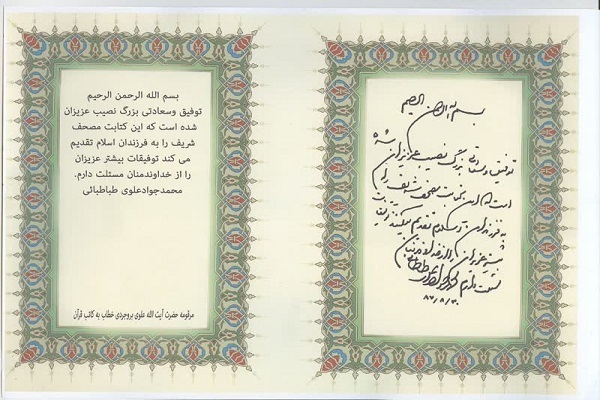 بسم الله الرحمن الرحیم
توفیق و سعادتی بزرگ نصیب عزیزان شده
است که این کتابت مصحف شریف را
به فرزندان اسلام تقدیم میکنند توفیقات
بیشتر عزیزان را از خداوند منان
مسئلت دارم محمدجواد علوی طباطبائی
بسم الله الرحمن الرحیم
توفیق وسعادتی بزرگ نصیب عزیزان
شده است که این کتابت مصحف
شریف را به فرزندان اسلام تقدیم
می کند توفیقات بیشتر عزیزان
را از خداوندمنان مسئلت دارم.
محمدجوادعلوی طباطبائی
مرقومه حضرت آیت الله علوی بروجردی خطاب به کاتب قرآن